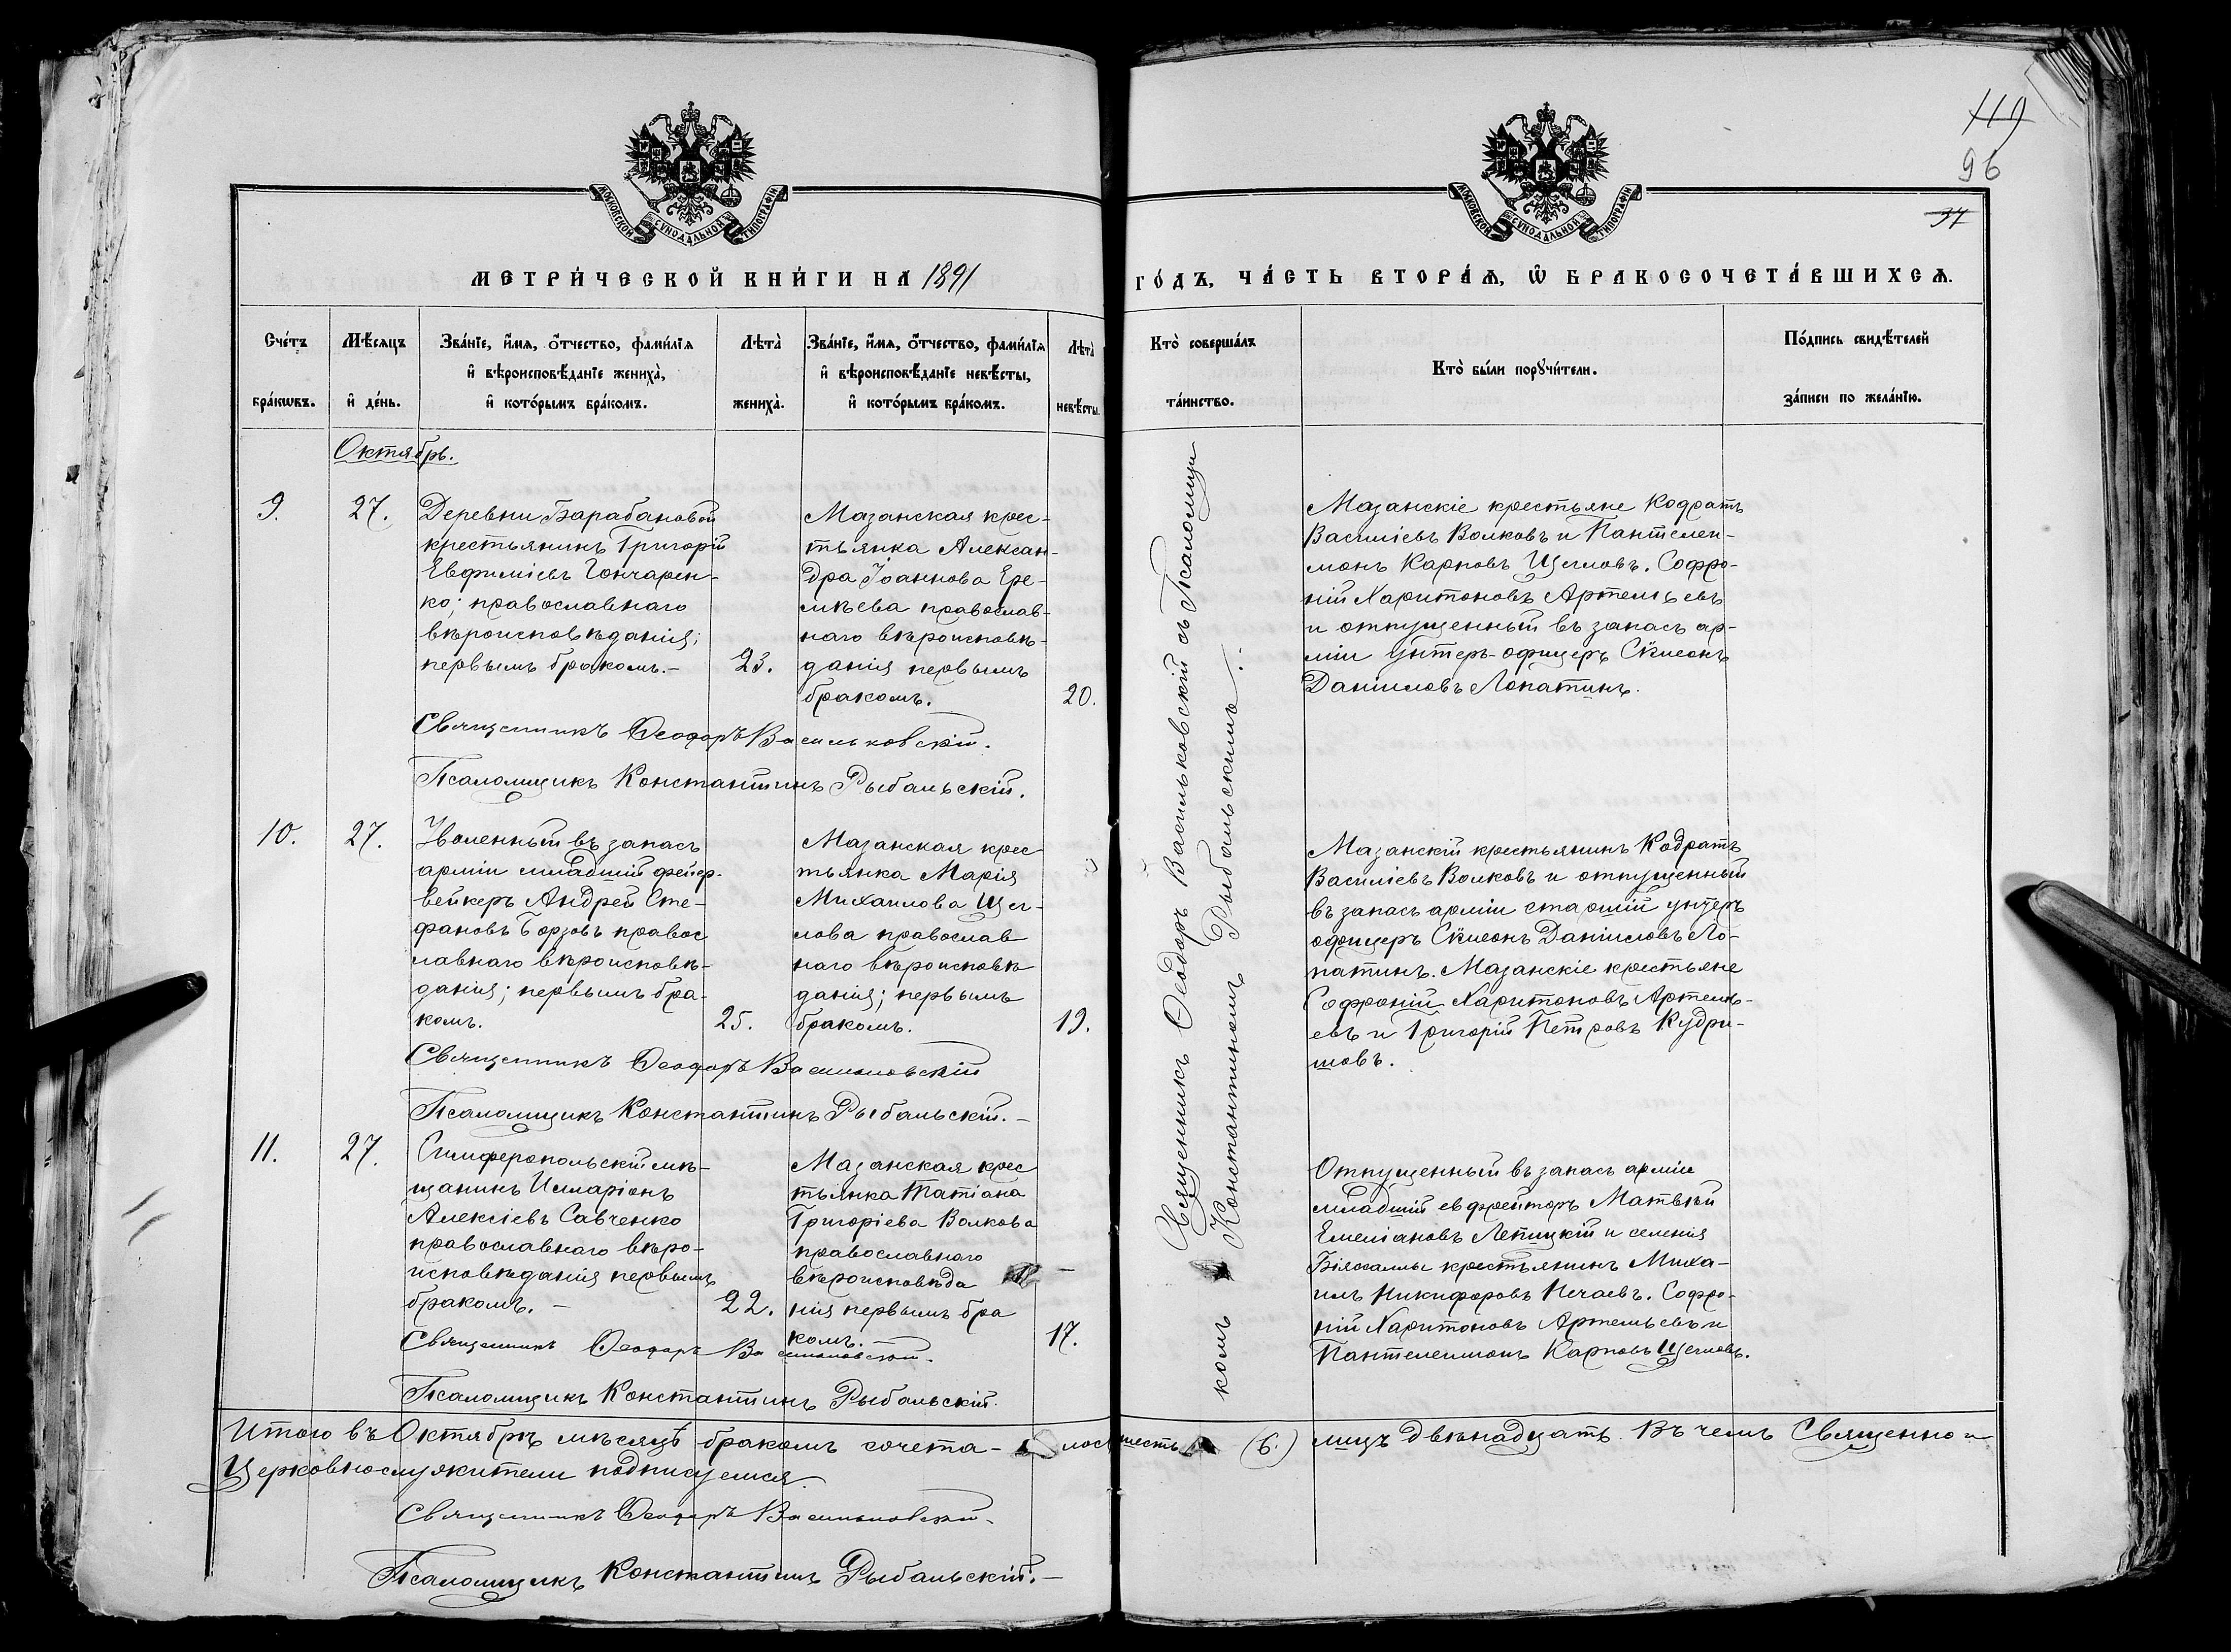 119
96
37
МОСКОВСКОЙ СУНОДАЛЬНОЙ ТИПОГРАФІИ
МОСКОВСКОЙ СУНОДАЛЬНОЙ ТИПОГРАФІИ
МЕТРИ́ЧЕСКОЙ КНИ́ГИ НА 1891
ГО́ДЪ, ЧА́СТЬ ВТОРА́Ѧ, Ѿ БРАКОСОЧЕТА́ВШИХСѦ.
Сче́тъ бра́кѡвъ.
Мѣ́сяцъ и҆ де́нь.
Зва́нїе, и҆́мѧ, ѻ҆́тчество, фами́лїѧ
и҆ вѣроисповѣ́данїе жениха̀,
и҆ кото́рымъ бра́комъ.
Лѣта̀ жениха̀.
Зва́нїе, и҆́мѧ, ѻ҆́тчество, фами́лїѧ
и҆ вѣроисповѣ́данїе невѣ́сты,
и҆ кото́рымъ бра́комъ.
Лѣта̀ невѣ́сты.
Кто̀ соверша́лъ
та́инство.
Кто̀ бы́ли порꙋчи́тели.
По́дпись свидѣ́телей
за́писи по жела́нїю.
Октябрь.
9.
27.
Деревни Барабановой
крестьянинъ Григорій
Евфиміевъ Гончарен-
ко; православнаго
вѣроисповѣданія;
первымъ бракомъ.-
23.
Мазанская крес-
тьянка Алексан-
дра Іоаннова Ере-
мѣева православ-
наго вѣроисповѣ-
данія первымъ
бракомъ.
20.
Священникъ Ѳеодоръ Васильковскій.
Псаломщикъ Константинъ Рыбальскій.
Мазанскіе крестьяне Кодратъ
Василіевъ Волковъ и Пантелеи-
монъ Карповъ Щегловъ. Софро-
ній Харитоновъ Артемьевъ
и отпущенный въ запасъ ар-
міи унтеръ-офицеръ Сѵмеонъ
Даніиловъ Лопатинъ.
10.
27.
Уволенный въ запасъ
арміи младшій фейер-
вейкеръ Андрей Сте-
фановъ Борзовъ правос
лавнаго вѣроисповѣ-
данія; первымъ бра-
комъ.
25.
Мазанская крес
тьянка Марія
Михаилова Щег-
лова православ
наго вѣроисповѣ
данія; первымъ
бракомъ.
19.
Священникъ Ѳеодоръ Васильковскій
Псаломщикъ Константинъ Рыбальскій.-
Мазанскій крестьянинъ Кодратъ
Василіевъ Волковъ и отпущенный
въ запасъ арміи старшій унтеръ
офицеръ Сѵмеонъ Даніиловъ Ло-
патинъ. Мазанскіе крестьяне
Софроній Харитоновъ Артемь-
евъ и Григорій Петровъ Кудри-
шовъ.
11.
27.
Симферопольскій мѣ-
щанинъ Иларіонъ
Алексіевъ Савченко
православнаго вѣро-
исповѣданія первымъ
бракомъ.-
22.
Мазанская крес
тьянка Татіана
Григоріева Волкова
православнаго
вѣроисповѣда
нія первымъ бра
комъ.
17.
Священникъ Ѳеодоръ Васильковскій.
Псаломщикъ Константинъ Рыбальскій.
Отпущенный въ запасъ арміи
младшій ефрейторъ Матвѣй
Емеліановъ Лепицкій и селенія
Біясалы крестьянинъ Миха-
илъ Никифоровъ Нечаевъ. Софро-
ній Харитоновъ Артемьевъ и
Пантелеимонъ Карповъ Щегловъ.
Священникъ Ѳеодоръ Васильковскій съ Псаломщи
комъ Константиномъ Рыбальскимъ.
Итого въ Октябрѣ мѣсяцѣ бракомъ сочета-лось шесть (6.) лицъ двѣнадцать. Въ чемъ Священно и
Церковнослужители подписуемся.
Священникъ Ѳеодоръ Васильковскій.
Псаломщикъ Константинъ Рыбальскій.-